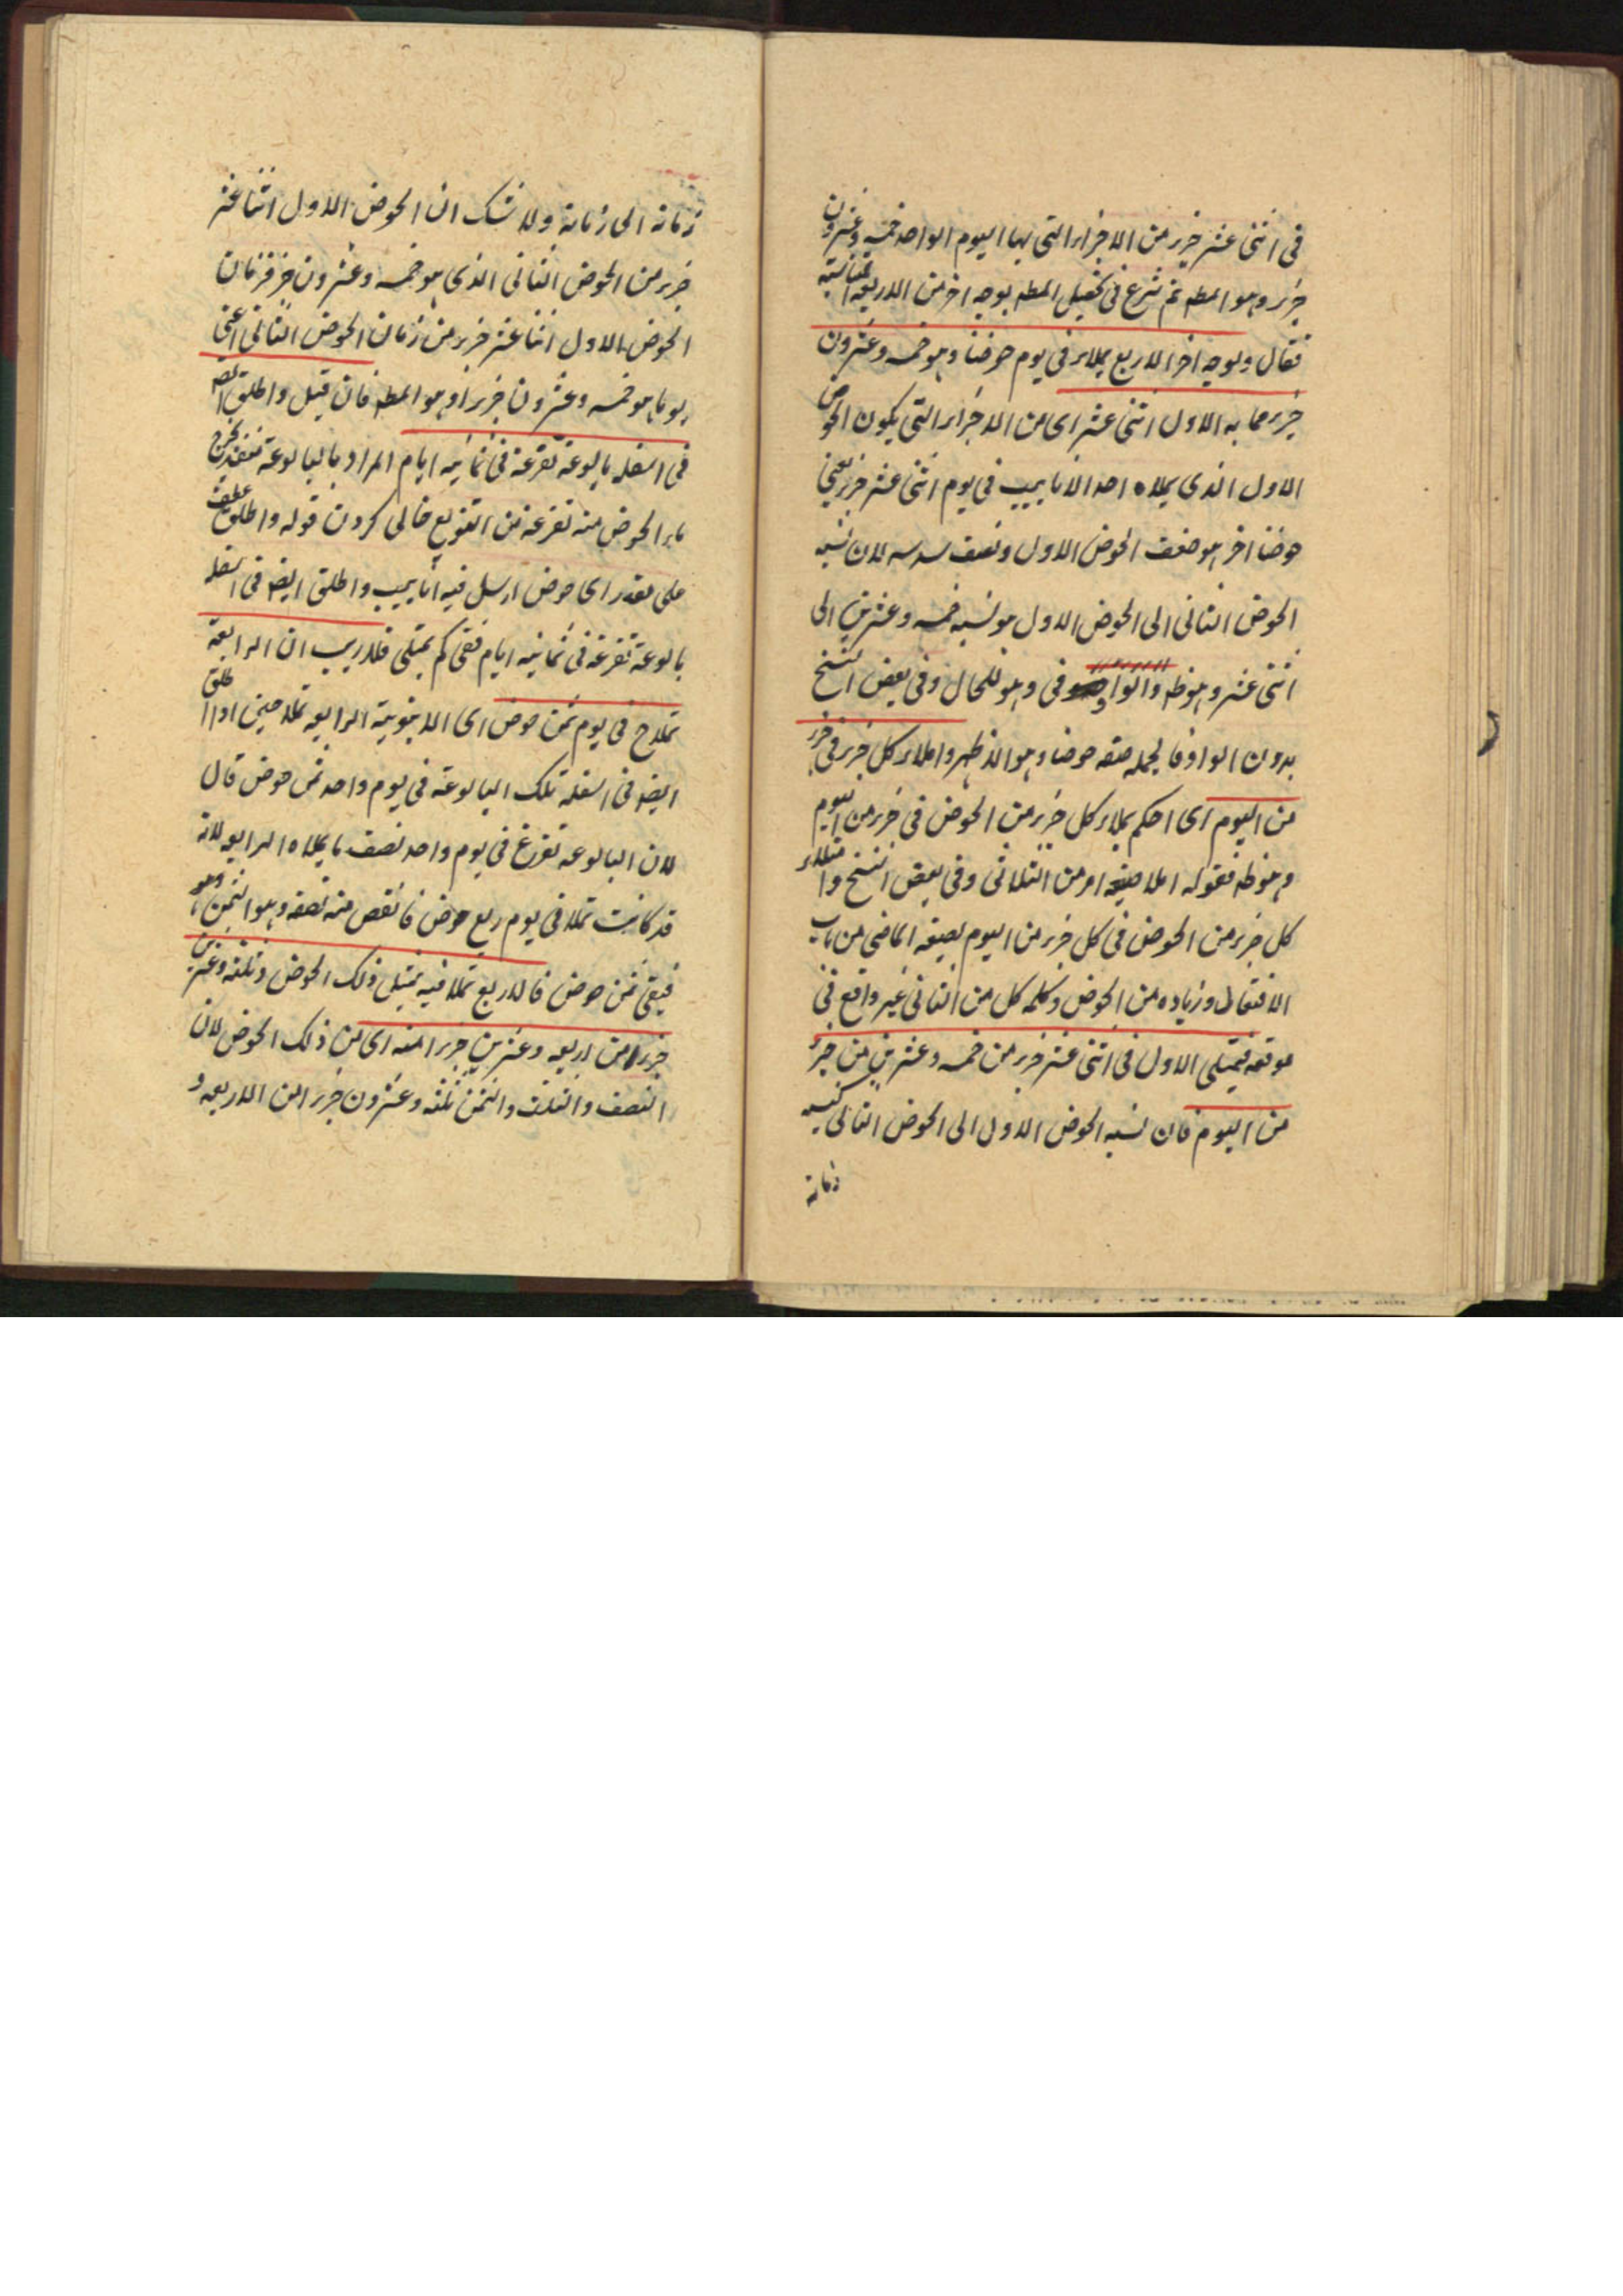 فى اثنى عشر جزء من الاجزاء التى بها اليوم الواحد خمسه وعشرون
جزء وهو المطه ثم شرع فى تحصيل المطه بوجه اخر من الاربعة المتناسبة
فقال وبوجه اخر الاربع يملاء فى يوم حوضنا وهو خمسه وعشرون
جزء مما به الاول اثنى عشر اى من الاجزاء التى يكون الحوض
الاول الذى يملاه احد الانابيب فى يوم اثنى عشر جزء يعنى
حوضا اخر هو ضعف الحوض الاول ونصف سدسه لان نسبه
الحوض الثانى الى الحوض الاول هو نسبه خمسه وعشرين الى
اثنى عشر وهو ظه والواو فى وهو للحال وفى بعض النسخ
بدون الواو فالجمله صفه حوضا وهو الاظهر واملاء كل جزء فى جزء
من اليوم اى احكم بملاء كل جزء من الحوض فى جزء من اليوم
وهو ظه فقوله املا صيغه امر من الثلاثى وفى بعض النسخ وامتلاء
كل جزء من الحوض فى كل جزء من اليوم بصيغه الماضى من باب
الافتعال وزياده من الحوض وكلمه كل من الثانى غير واقع فى
موقعه فيمتلى الاول فى اثنى عشر جزء من خمسه وعشرين من جزء
من اليوم فان نسبه الحوض الاول الى الحوض الثانى كنسبه
زمانه
زمانه الى زمانه ولا شك ان الحوض الاول اثنا عشر
جزء من الحوض الثانى الذى هو خمسه وعشرون جزء فزمان
الحوض الاول اثنا عشر جزء من زمان الحوض الثانى اعنى
يوما هو خمسه وعشرون جزءا وهو المطه فان قيل واطلق ايضه
فى اسفله بالوعة تفرغه فى ثمانيه ايام المراد بالبالوعة منفذ يخرج
ماء الحوض منه تفرغه من التفريغ خالى كردن قوله واطلق عطف
على مقدر اى حوض ارسل فيه انابيب واطلق ايضه فى اسفله
بالوعة تفرغه فى ثمانيه ايام ففى كم يمتلى فلا ريب ان الرابعة
تملاء ح فى يوم ثمن حوض اى الانبوبة الرابعه تملا حين اذ اطلق
ايضه فى اسفله تلك البالوعة فى يوم واحد ثمن حوض قال
لان البالوعه تفرغ فى يوم واحد نصف ما يملاه الرابعه لانه
قد كانت تملا فى يوم ربع حوض فانقص منه نصفه وهو الثمن
فيبقى ثمن حوض فالاربع تملا فيه يمتلى ذلك الحوض وثلثه وعشرين
جزءا من اربعه وعشرين جزءا منه اى من ذلك الحوض لان
النصف والثلث والثمن ثلثه وعشرون جزء من الاربعه و